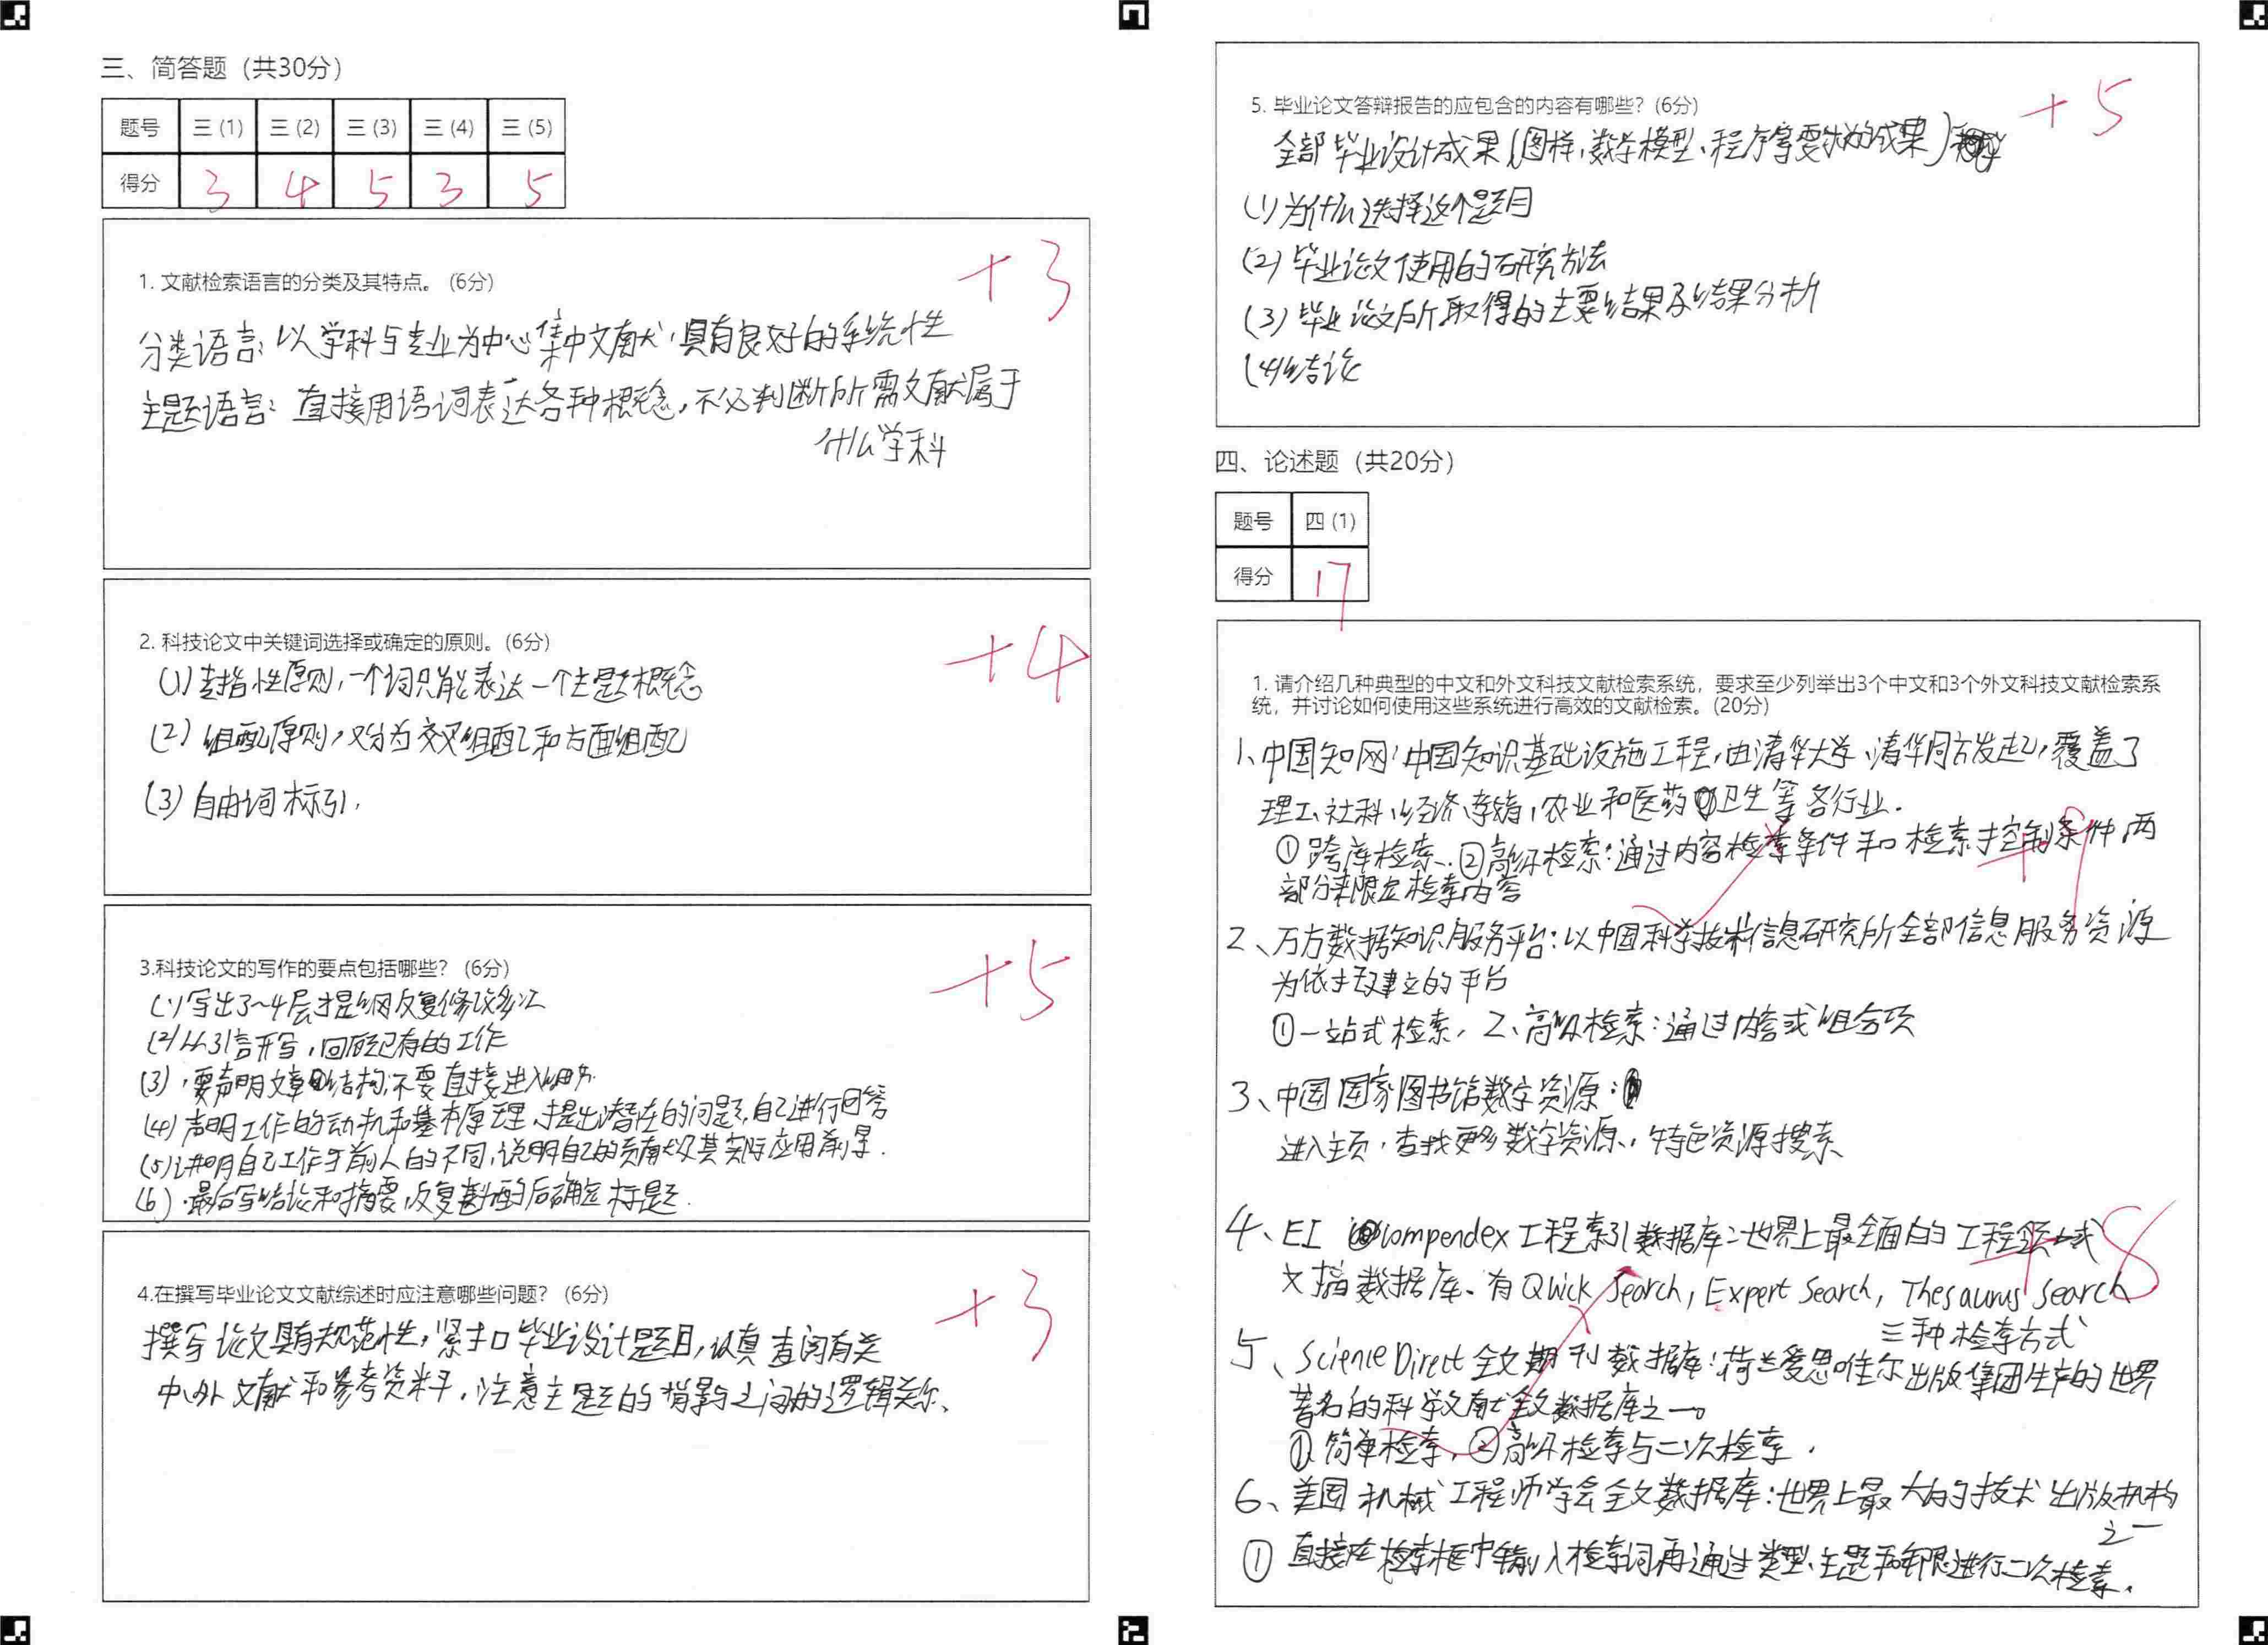 三、简答题（共30分）
题号 三 (1) 三 (2) 三 (3) 三 (4) 三 (5)
得分 3 4 5 3 5
+3
1. 文献检索语言的分类及其特点。（6分）
分类语言：以学科与专业为中心集中文献，具有良好的系统性
主题语言：直接用语词表达各种概念，不必判断所需文献属于
什么学科
+4
2. 科技论文中关键词选择或确定的原则。(6分)
(1) 专指性原则，一个词只能表达一个主题概念
(2) 组配原则，又分为交叉组配和方面组配
(3) 自由词标引.
+5
3.科技论文的写作的要点包括哪些？（6分）
(1) 写出3~4层提纲反复修改多次
(2) 从引言开写，回顾已有的工作
(3)，要声明文章结构，不要直接进入细节.
(4) 声明工作的动机和基本原理、提出潜在的问题，自己进行回答
(5) 讲明自己工作于前人的不同，说明自己的贡献及其实际应用前景.
(6) .最后写结论和摘要，反复斟酌后确定标题.
+3
4.在撰写毕业论文文献综述时应注意哪些问题？（6分）
撰写论文具有规范性，紧扣毕业设计题目，认真查阅有关
中、外文献和参考资料，注意主题的背景与之间的逻辑关系、
+5
5. 毕业论文答辩报告的应包含的内容有哪些？(6分)
全部毕业设计成果（图样，数学模型、程序等要求的成果）
(1) 为什么选择这个题目
(2) 毕业论文使用的研究方法
(3) 毕业论文所取得的主要结果及结果分析
(4) 结论
四、论述题（共20分）
题号 四 (1)
得分 17
1. 请介绍几种典型的中文和外文科技文献检索系统，要求至少列举出3个中文和3个外文科技文献检索系
统，并讨论如何使用这些系统进行高效的文献检索。(20分)
1、中国知网：中国知识基础设施工程，由清华大学、清华同方发起，覆盖了
理工、社科、经济、农业和医药卫生等各行业.
① 跨库检索、②高级检索：通过内容检索条件和检索控制条件两
部分来限定检索内容
+9
2、万方数据知识服务平台：以中国科学技术信息研究所全部信息服务资源
为依托建立的平台
①一站式检索，2、高级检索：通过内容或组合项
3、中国国家图书馆数字资源：
进入主页，查找更多数字资源、，特色资源搜索
4、EI Compendex 工程索引数据库：世界上最全面的工程领域
文摘数据库、有Quick Search, Expert Search, Thesaurus Search
三种检索方式
+8
5、Science Direct 全文期刊数据库：荷兰爱思唯尔出版集团生产的世界
著名的科学文献全文数据库之一。
① 简单检索，②高级检索与二次检索.
6、美国机械工程师学会全文数据库：世界上最大的技术出版机构
之一
① 直接在检索框中输入检索词再通过类型、主题和年限进行二次检索.